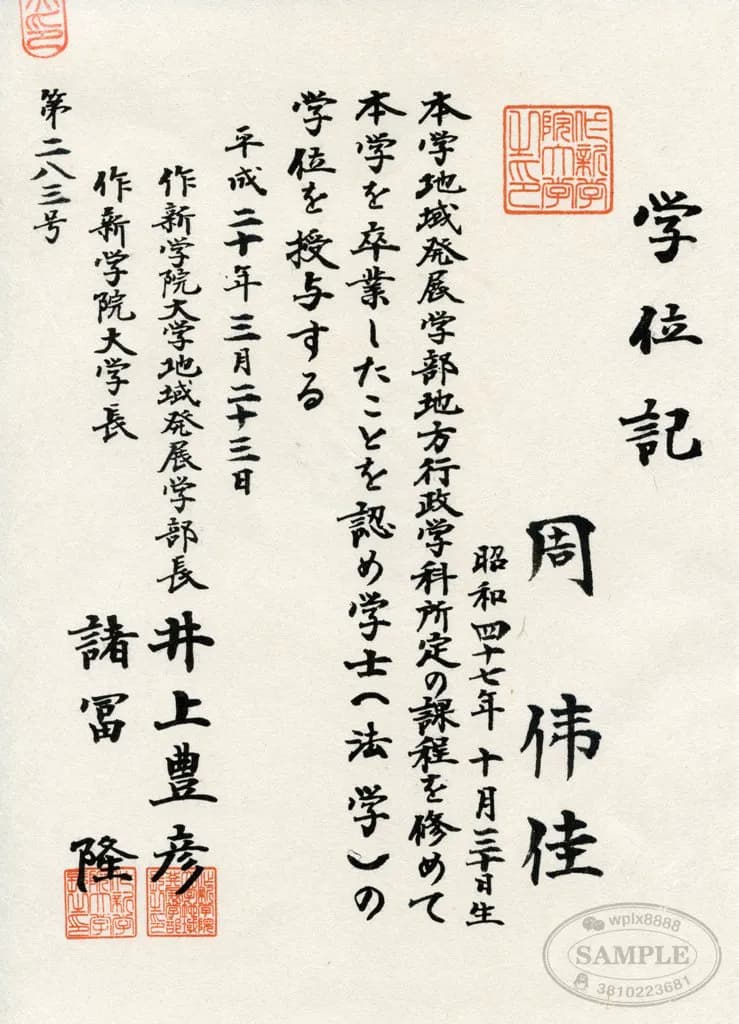 学位記
周 伟佳
昭和四十七年 十月二十日生
本学地域発展学部地方行政学科所定の課程を修めて
本学を卒業したことを認め学士(法学)の
学位を授与する
平成二十年三月二十三日
作新学院大学地域発展学部長 井上豊彦
作新学院大学長 諸冨 隆
第二八三号
作新学院大学之印
wplx8888
SAMPLE
3810223681